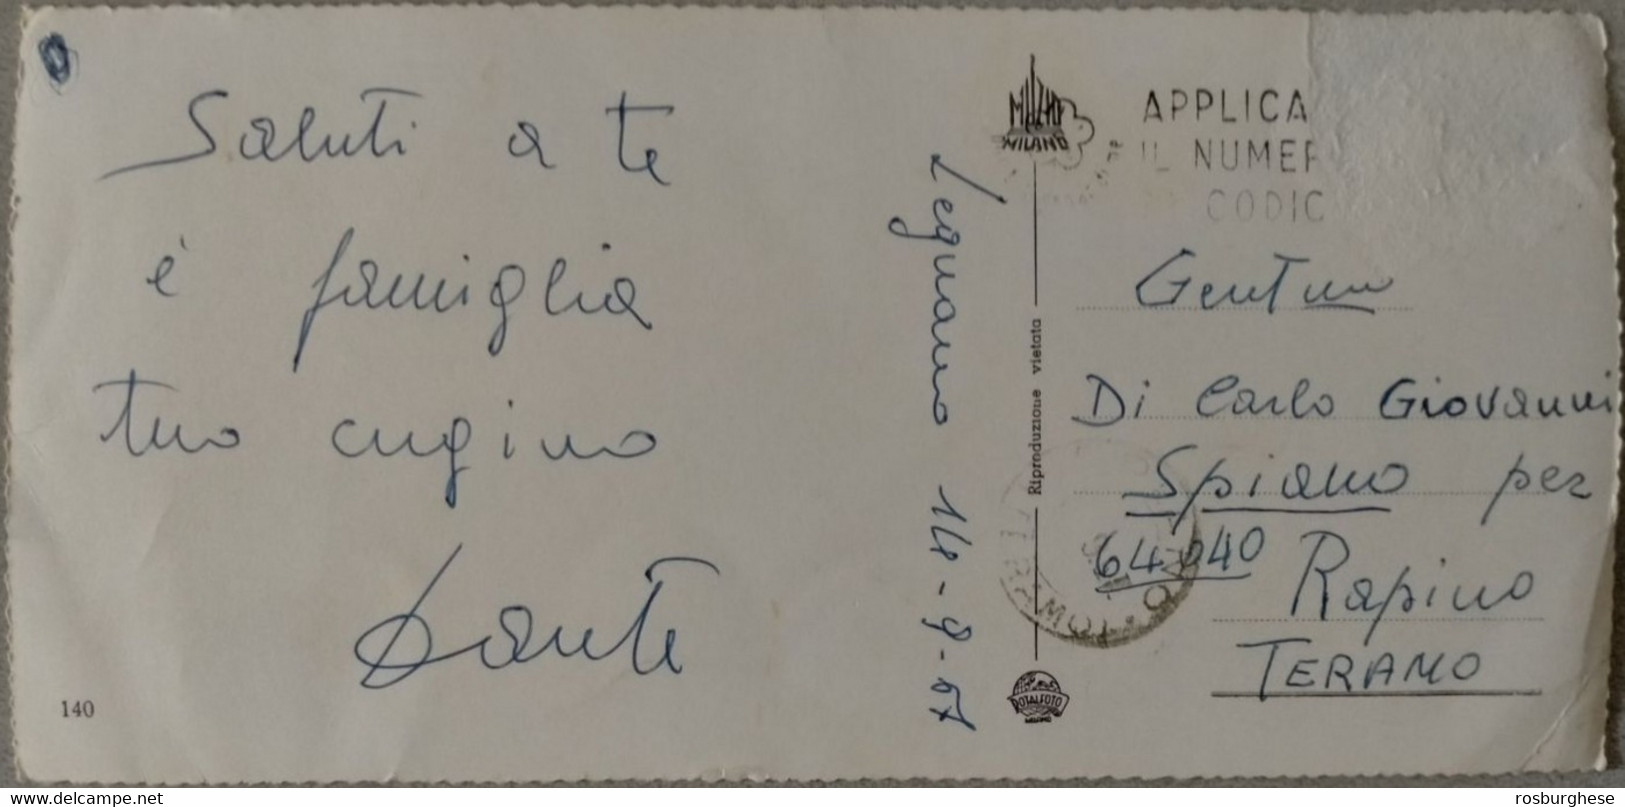 Saluti a te
è famiglia
tuo cugino
Dante
140
Legnano 14-9-67
MILANO
Riproduzione vietata
ROTALFOTO
MILANO
APPLICA
IL NUMER
CODIC
Di Carlo Giovanni
Spiano per
64040
Rapino
TERAMO
www.delcampe.net
rosburghese